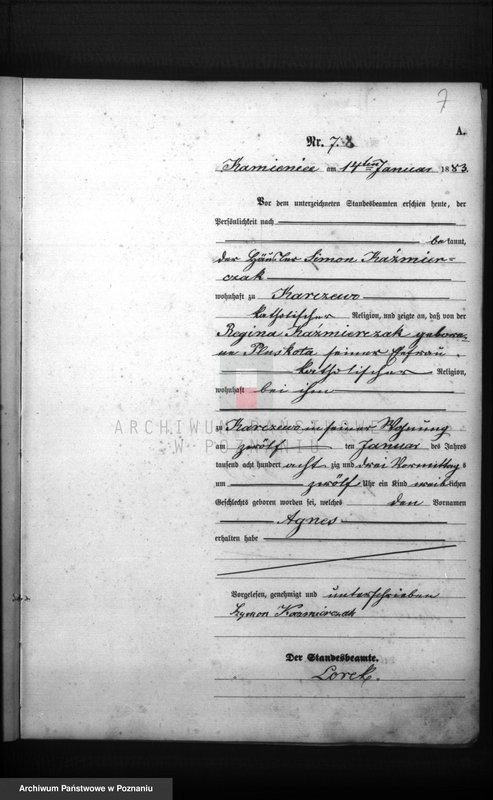 7
A.
Nr. 7.
Kamieniec am 14ten Januar 1883.
Vor dem unterzeichneten Standesbeamten erschien heute, der
Persönlichkeit nach
bekannt,
der Häusler Simon Kaźmier=
czak
wohnhaft zu Karczewo
katholischer Religion, und zeigte an, daß von der
Regina Kaźmierczak gebore=
ne Pluskota seiner Ehefrau
katholischer Religion,
wohnhaft bei ihm
ARCHIWUM PAŃSTWOWE
W POZNANIU
zu Karczewo in seiner Wohnung
am zwölf ten Januar des Jahres
tausend acht hundert acht zig und drei Vormittags
um zwölf Uhr ein Kind weiblichen
Geschlechts geboren worden sei, welches den Vornamen
Agnes
erhalten habe
Vorgelesen, genehmigt und unterschrieben
Szymon Kazmierczak
Der Standesbeamte.
Lorek.
Archiwum Państwowe w Poznaniu